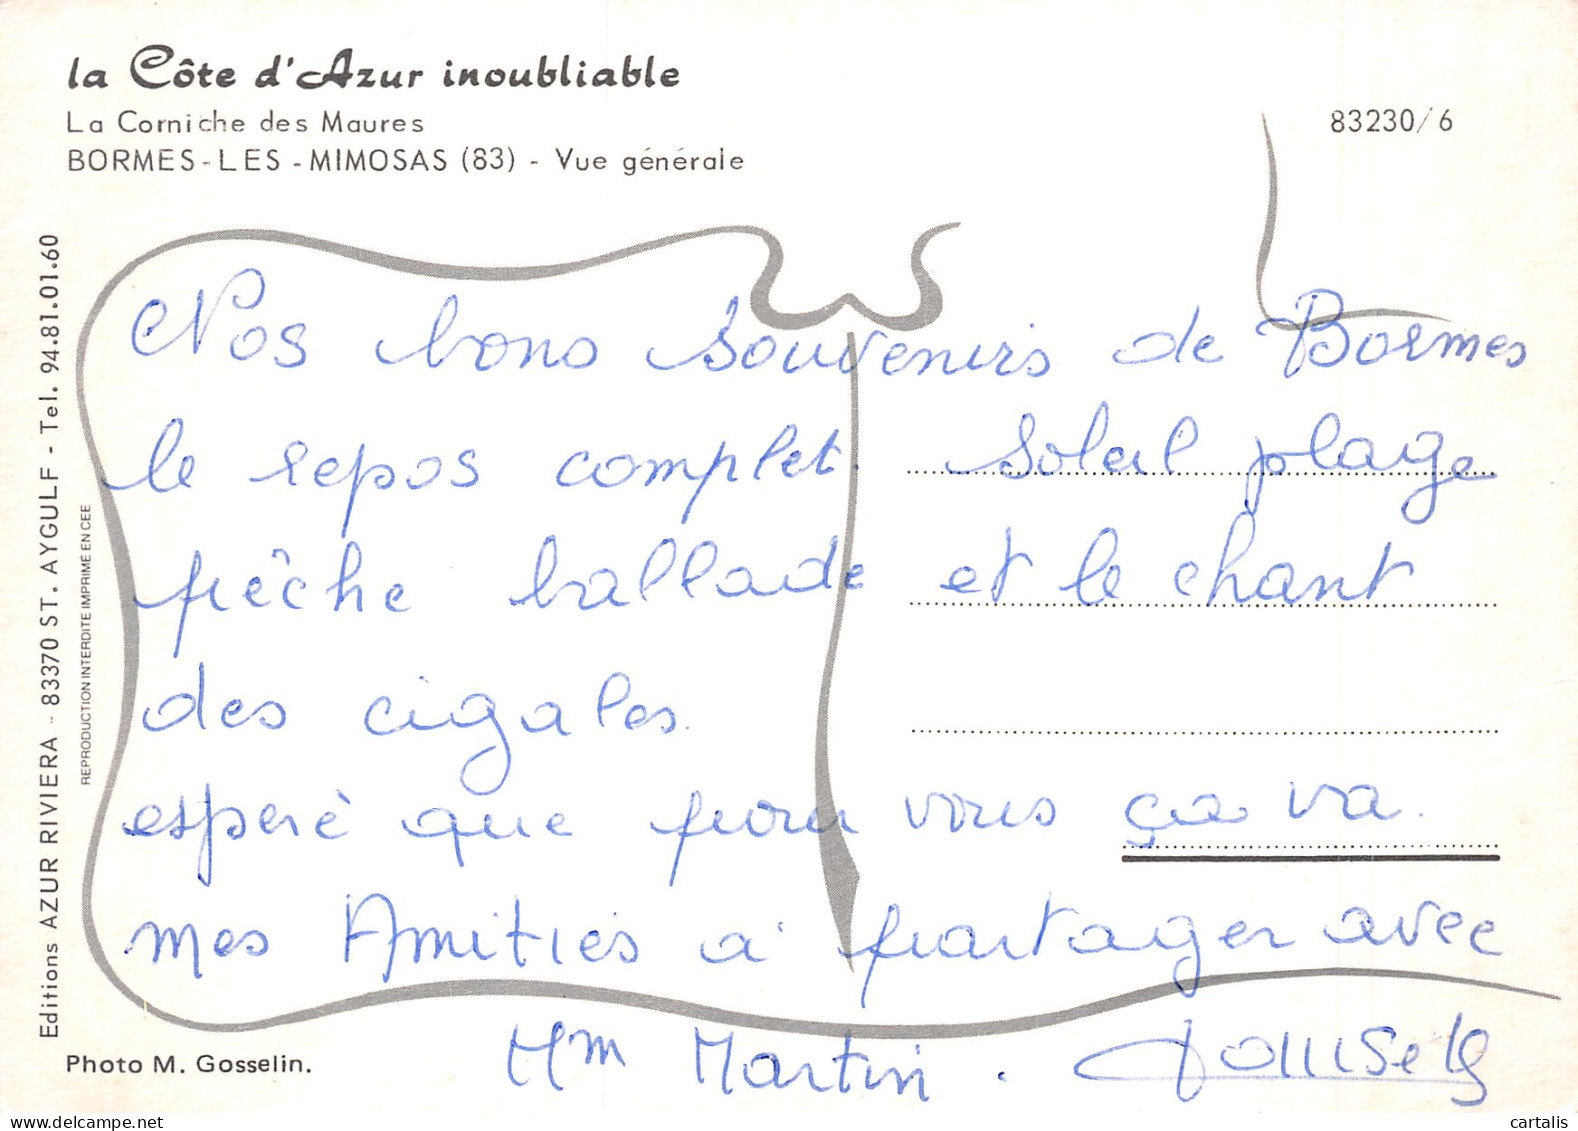 la Côte d'Azur inoubliable
La Corniche des Maures
BORMES-LES-MIMOSAS (83) - Vue générale
83230/6
Editions AZUR RIVIERA - 83370 ST. AYGULF - Tel. 94.81.01.60
REPRODUCTION INTERDITE IMPRIME EN CEE
Nos bons souvenirs de Bormes
le repos complet. Soleil plage
pêche ballade et le chant
des cigales.
esperè que pour vous ça va.
mes Amitiés à partager avec
Mm Martin.
Photo M. Gosselin.
cartalis